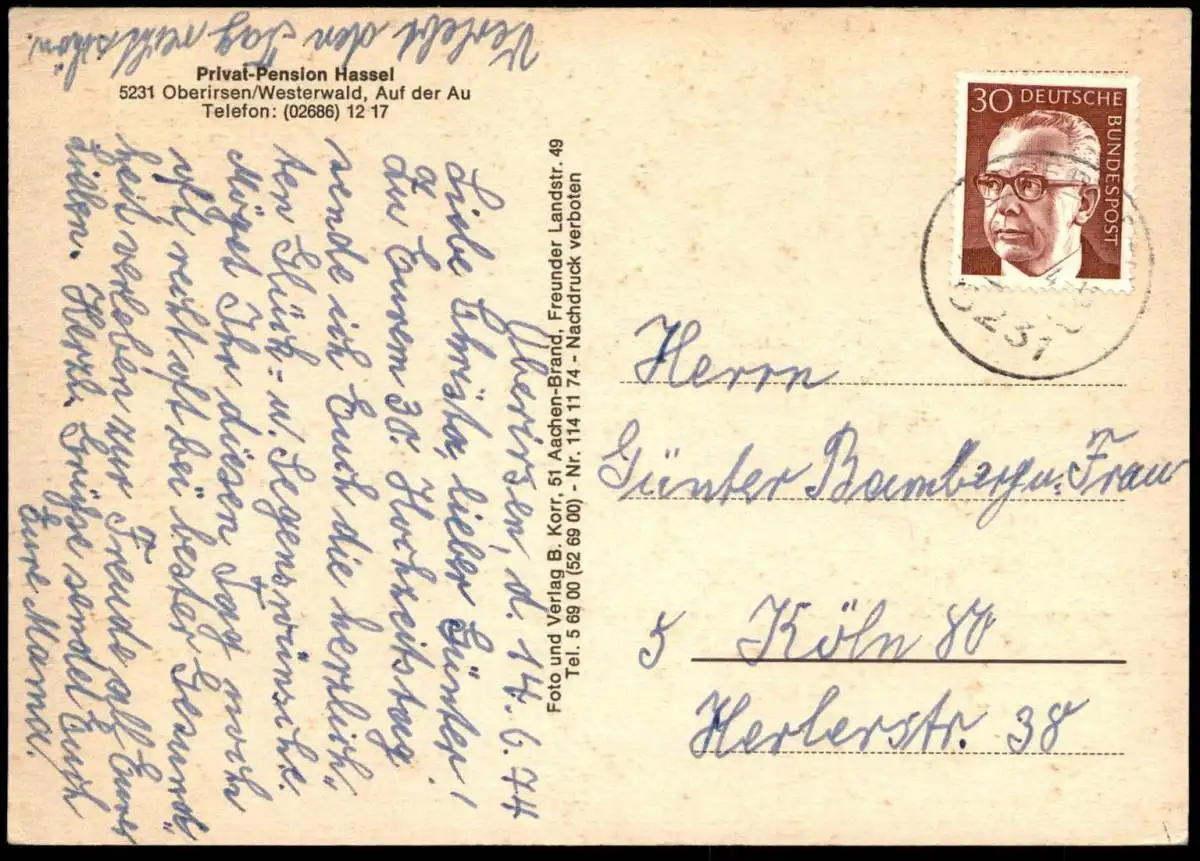 Privat-Pension Hassel
5231 Oberirsen/Westerwald, Auf der Au
Telefon: (02686) 12 17
Oberirsen, d. 14. 6. 74
Liebe Christa, lieber Günter!
Zu Eurem 30. Hochzeitstag
sende ich Euch die herzlich-
sten Glück- u. Segenswünsche.
Möget Ihr diesen Tag noch
oft, recht oft bei bester Gesund-
heit verleben zur Freude all Eurer
Lieben. Herzl. Grüße sendet Euch
Eure Mama.
Verlebt den Tag recht schön.
Foto und Verlag B. Korr, 51 Aachen-Brand, Freunder Landstr. 49
Tel. 5 69 00 (52 69 00) - Nr. 114 11 74 - Nachdruck verboten
30 DEUTSCHE BUNDESPOST
5231
Herrn
Günter Bamberg u. Frau
5 Köln 80
Herlerstr. 38